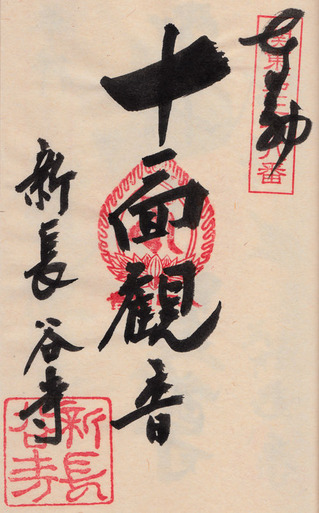 奉拝
十一面観音
新長谷寺
新長谷寺